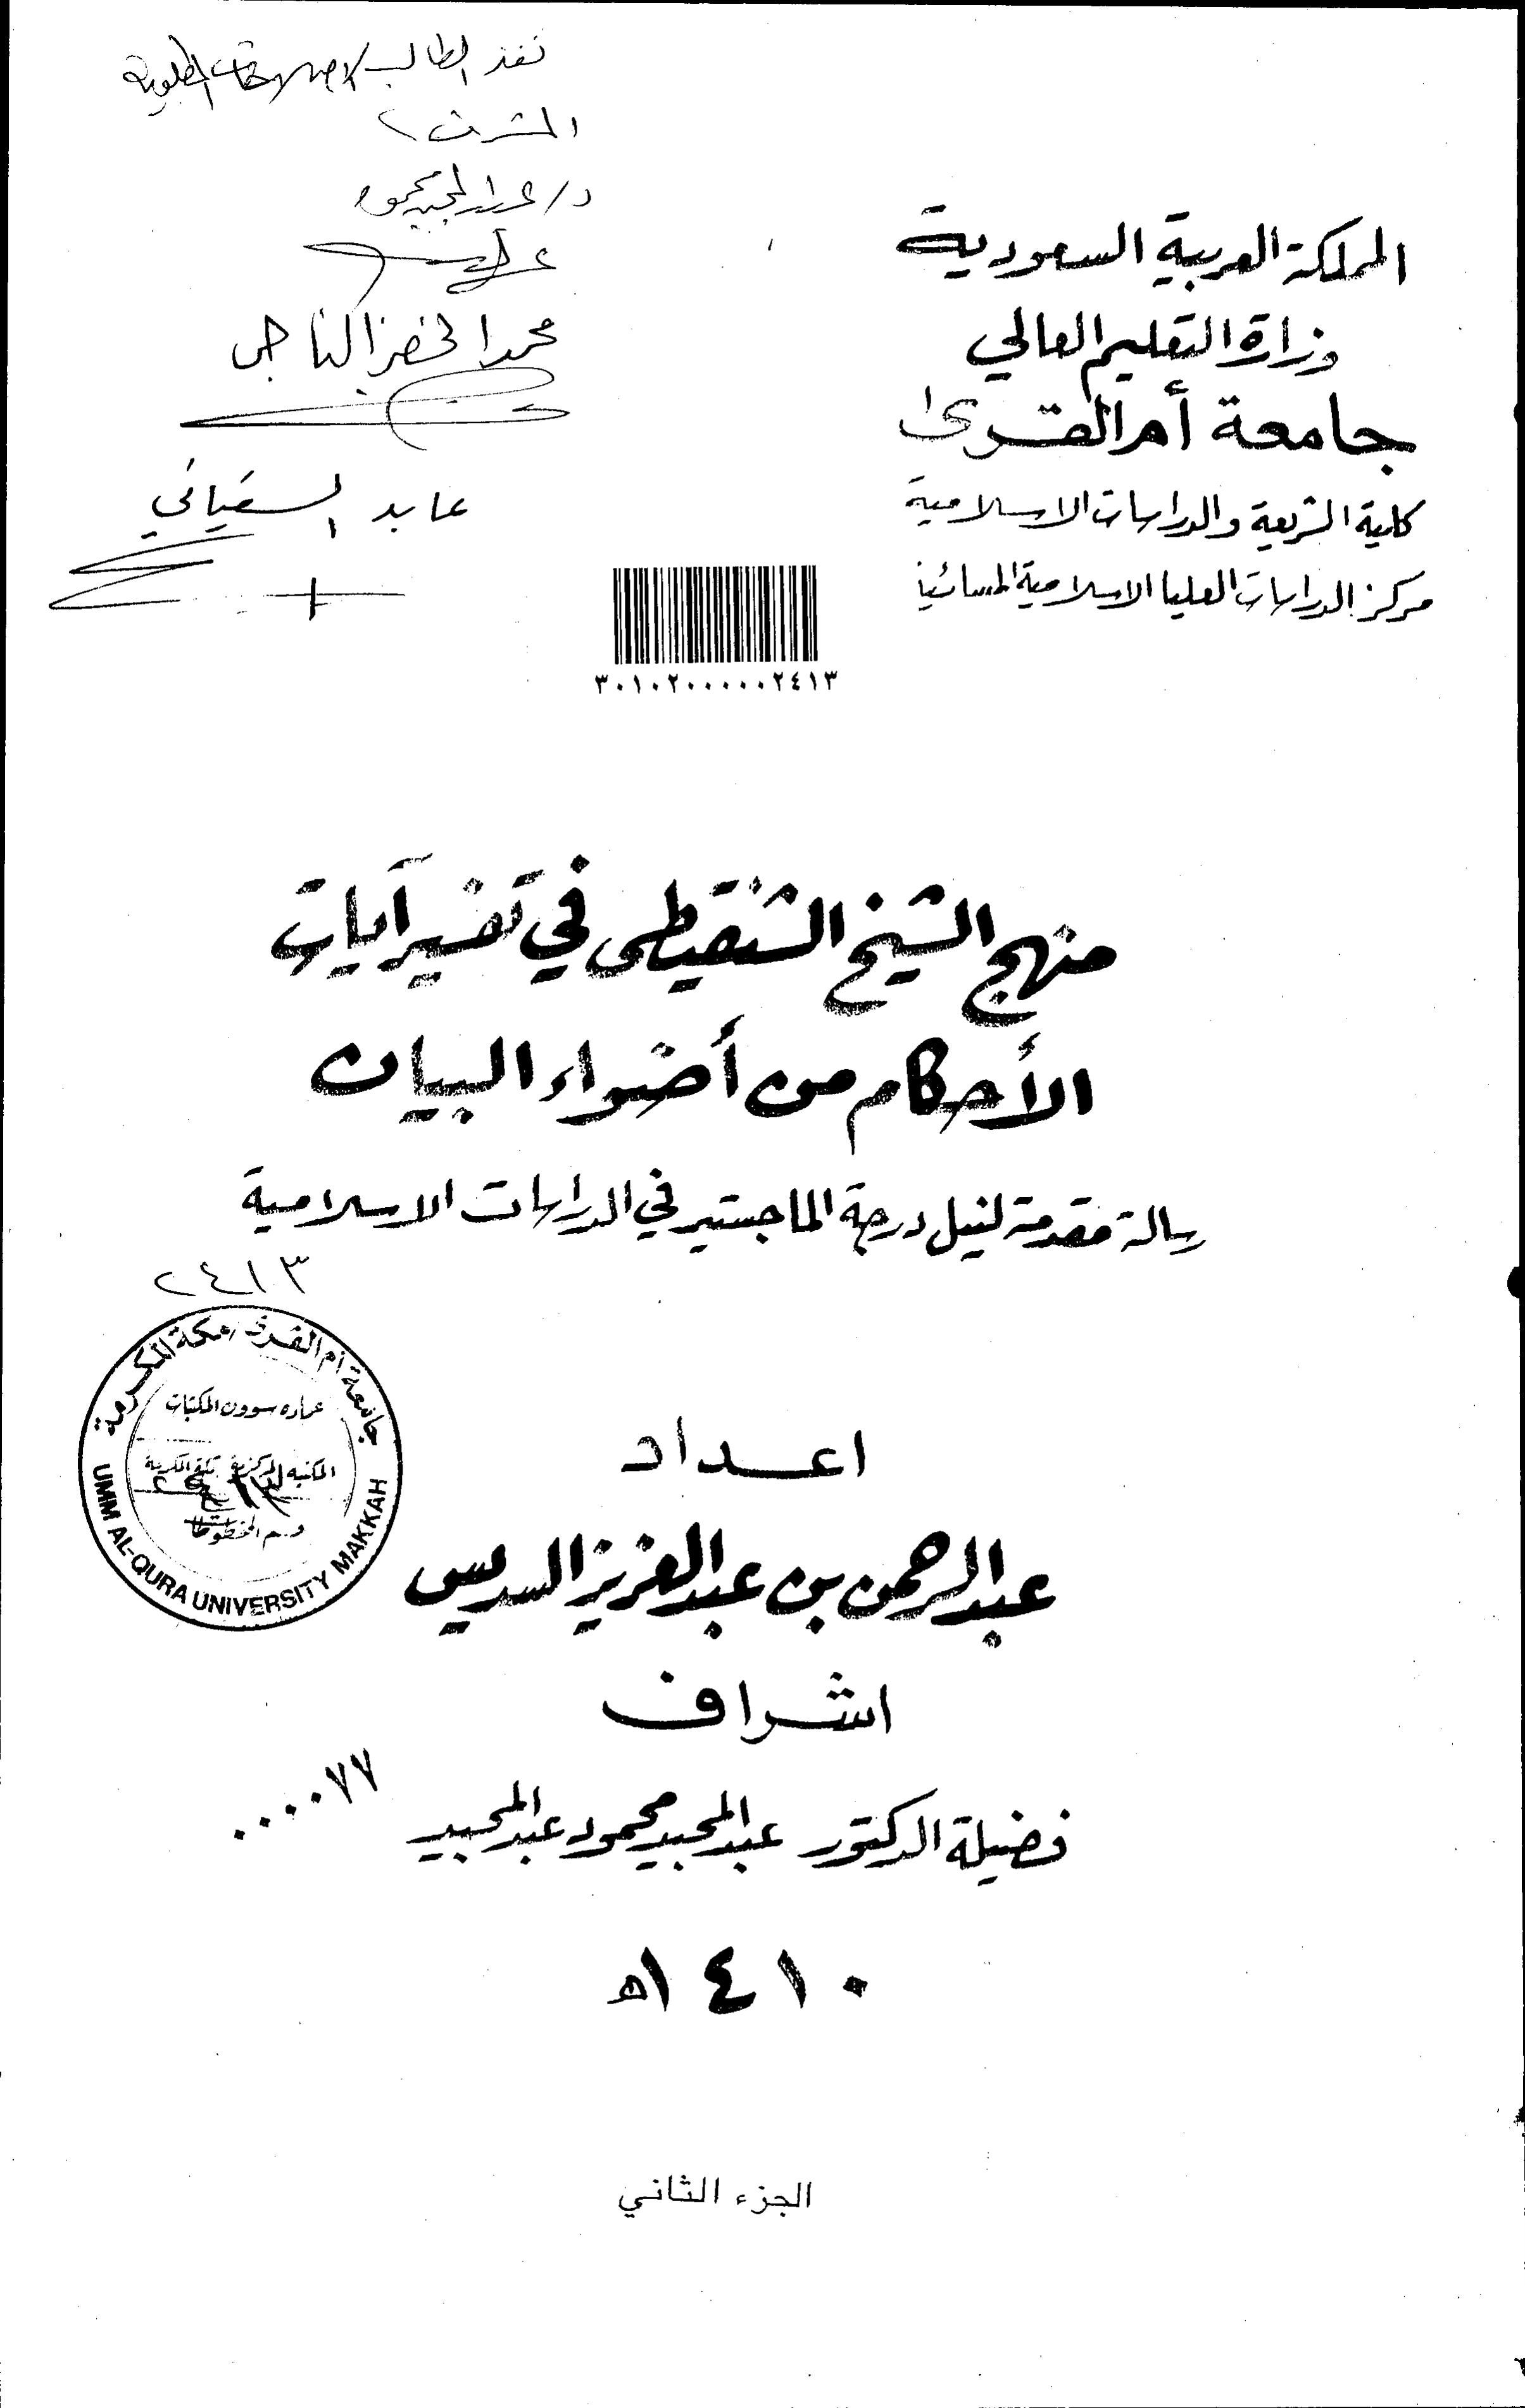 نفذ الطالب الاصلاحات المطلوبة
المشرف
د/ عبد المجيد محمود
محمد الخضر الناجي
عابد السفياني
المملكة العربية السعودية
وزارة التعليم العالي
جامعة أم القرى
كلية الشريعة والدراسات الاسلامية
مركز الدراسات العليا الاسلامية المسائية
٣٠١٠٢٠٠٠٠٠٢٤١٣
منهج الشيخ الشنقيطى في تفسير آيات
الأحكام من أضواء البيان
رسالة مقدمة لنيل درجة الماجستير في الدراسات الاسلامية
٢٤١٣
جامعة أم القرى مكة المكرمة
عمادة شؤون المكتبات
المكتبة المركزية بمكة المكرمة
٢٤١٣
قسم المخطوطات
UMM AL-QURA UNIVERSITY MAKKAH
اعداد
عبدالرحمن بن عبدالعزيز السديس
اشراف
فضيلة الدكتور عبدالمجيد محمود عبدالمجيد
٠٠٠٠٧٧
١٤١٠ه
الجزء الثاني